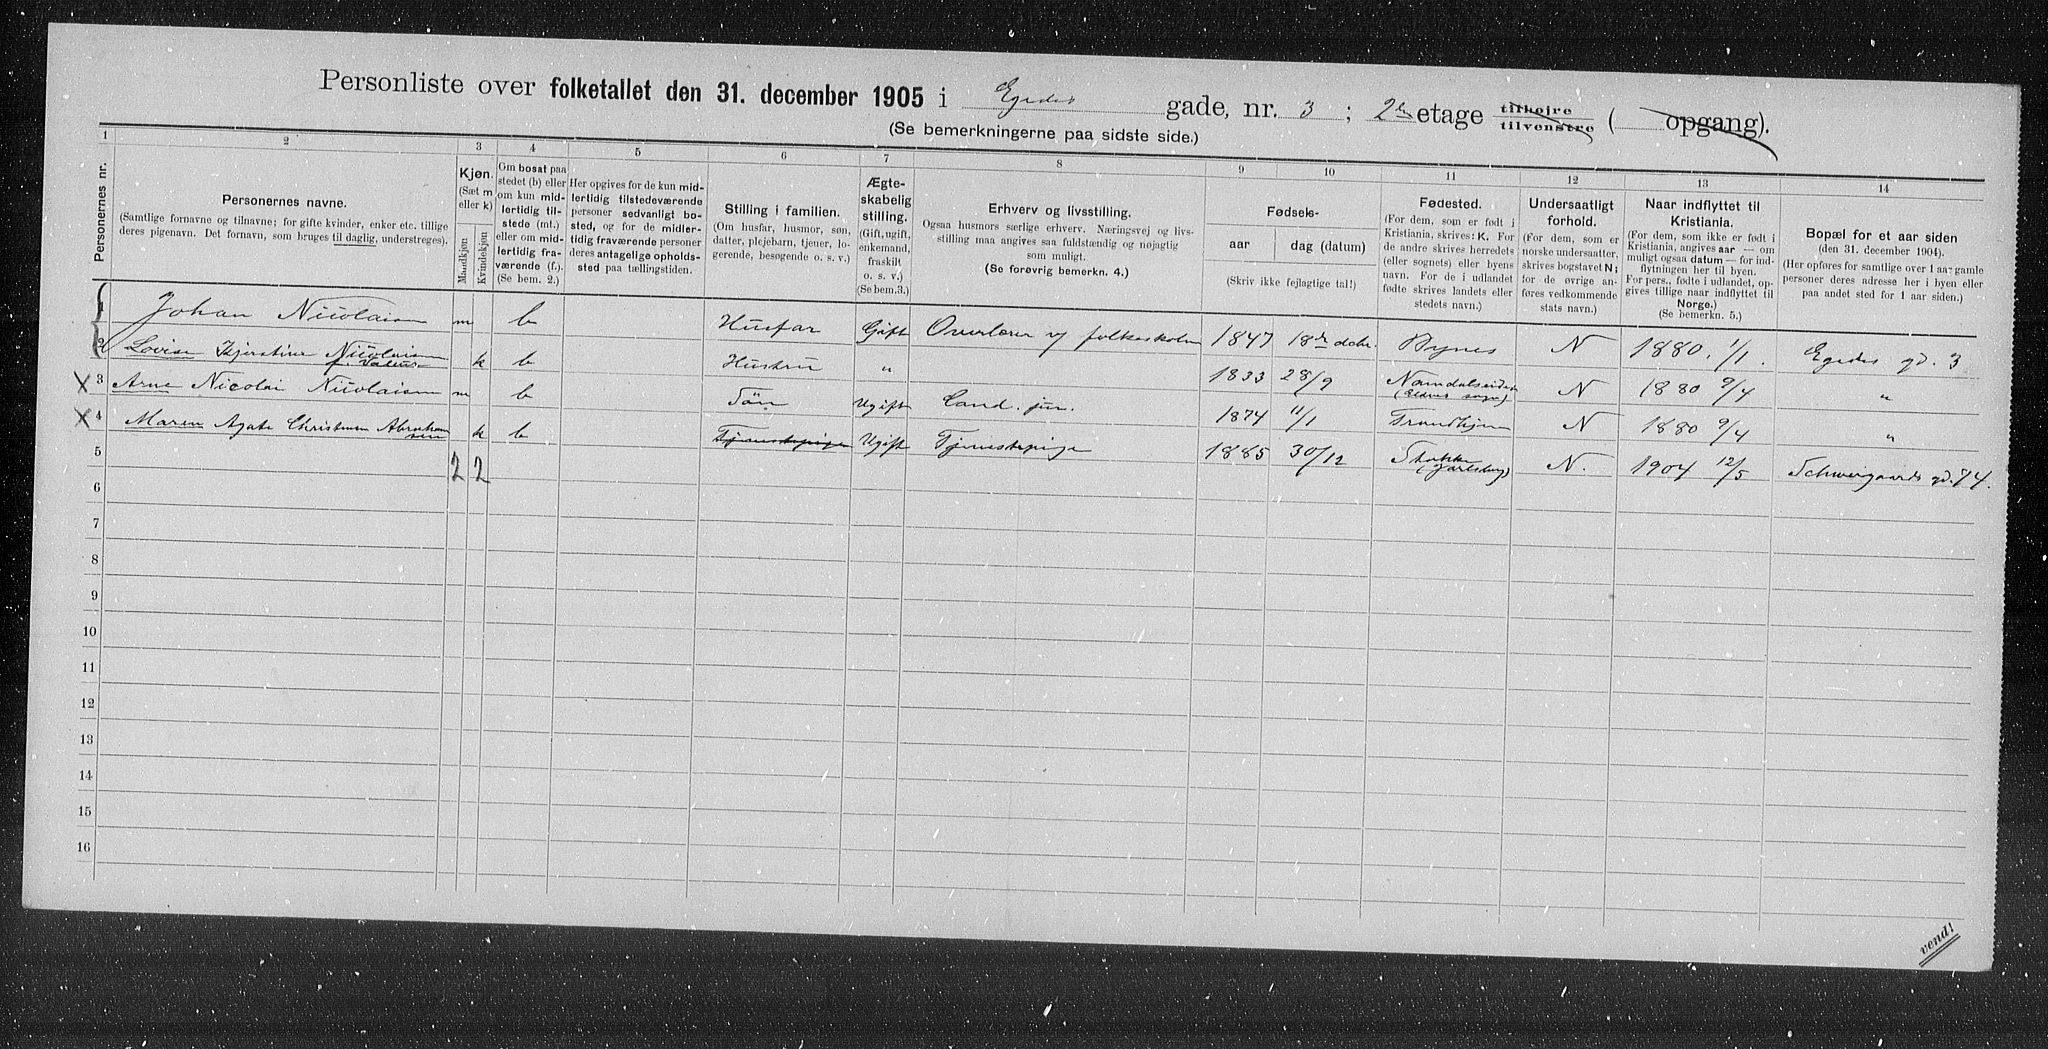 Personliste over folketallet den 31. december 1905 i Egedes gade, nr. 3 ; 2den etage tilhøire tilvenstre ( opgang).
(Se bemerkningerne paa sidste side.)
1 2 3 4 5 6 7 8 9 10 11 12 13 14
Personernes nr.
Personernes navne.
(Samtlige fornavne og tilnavne; for gifte kvinder, enker etc. tillige
deres pigenavn. Det fornavn, som bruges til daglig, understreges).
Kjøn.
(Sæt m
eller k)
Mandkjøn
Kvindekjøn
Om bosat paa
stedet (b) eller
om kun mid-
lertidig til-
stede (mt.)
eller om mid-
lertidig fra-
værende (f.).
(Se bem. 2.)
Her opgives for de kun mid-
lertidig tilstedeværende
personer sedvanligt bo-
sted, og for de midler-
tidig fraværende personer
deres antagelige opholds-
sted paa tællingstiden.
Stilling i familien.
(Om husfar, husmor, søn,
datter, plejebarn, tjener, lo-
gerende, besøgende o. s. v.)
Ægte-
skabelig
stilling.
(Gift, ugift,
enkemand,
fraskilt
o. s. v.)
(Se bem. 3.)
Erhverv og livsstilling.
Ogsaa husmors særlige erhverv. Næringsvej og livs-
stilling maa angives saa fuldstændig og nøjagtig
som muligt.
(Se forøvrig bemerkn. 4.)
Fødsels-
aar dag (datum)
(Skriv ikke fejlagtige tal!)
Fødested.
(For dem, som er født i
Kristiania, skrives: K. For
de andre skrives herredets
(eller sognets) eller byens
navn. For de i udlandet
fødte skrives landets eller
stedets navn.)
Undersaatligt
forhold.
(For dem, som er
norske undersaatter,
skrives bogstavet N;
for de øvrige an-
føres vedkommende
stats navn.)
Naar indflyttet til
Kristiania.
(For dem, som ikke er født i
Kristiania, angives aar — om
muligt ogsaa datum — for ind-
flytningen her til byen.
For pers., fødte i udlandet, op-
gives tillige naar indflyttet til
Norge.)
(Se bemerkn. 5.)
Bopæl for et aar siden
(den 31. december 1904).
(Her opføres for samtlige over 1 aar gamle
personer deres adresse her i byen eller
paa andet sted for 1 aar siden.)
1 Johan Nicolaisen m b Husfar Gift Overlærer v folkeskolen 1847 18de decbr. Bynes N 1880. 1/1. Egedes gd. 3
2 Lovise Kjerstine Nicolaisen k b Hustru " 1833 28/9 Namdalseidet N 1880 9/4 "
3 Arne Nicolai Nicolaisen m b Søn Ugift Cand. jur. 1874 11/1 Trondhjem N 1880 9/4 "
4 Maren Agate Christensen Abraham
sen k b Tjenestepige Ugift Tjenestepige 1885 30/12 Stokke
(Jarlsberg) N. 1904 12/5 Schweigaards gd. 74.
5 2 2
6
7
8
9
10
11
12
13
14
15
16
vend!